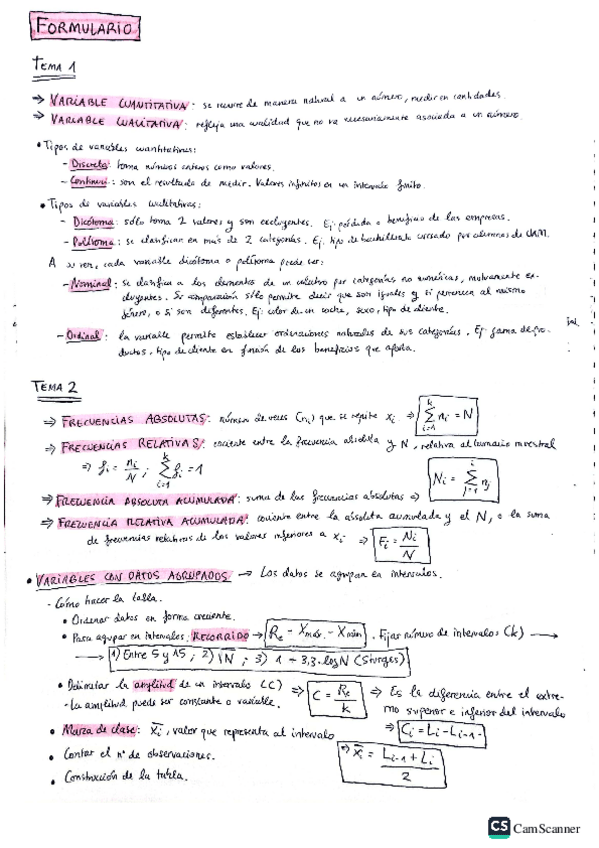 FORMULARIO
TEMA 1
⇒ VARIABLE CUANTITATIVA: se recurre de manera natural a un número, medir en cantidades.
⇒ VARIABLE CUALITATIVA: refleja una cualidad que no va necesariamente asociada a un número.
• Tipos de variables cuantitativas:
– Discreta: toma números enteros como valores.
– Continua: son el resultado de medir. Valores infinitos en un intervalo finito.
• Tipos de variables cualitativas:
– Dicótoma: sólo toma 2 valores y son excluyentes. Ej: pérdida o beneficio de las empresas.
– Polítoma: se clasifican en más de 2 categorías. Ej: tipo de bachillerato cursado por alumnos de UAM.
A su vez, cada variable dicótoma o polítoma puede ser:
– Nominal: se clasifica a los elementos de un colectivo por categorías no numéricas, mutuamente ex-
cluyentes. Su comparación sólo permite decir que son iguales y si pertenecen al mismo
género, o si son diferentes. Ej: color de un coche, sexo, tipo de cliente.
– Ordinal: la variable permite establecer ordenaciones naturales de sus categorías. Ej: gama de pro-
ductos, tipo de cliente en función de los beneficios que aporta.
TEMA 2
⇒ FRECUENCIAS ABSOLUTAS: número de veces (ni) que se repite xi ⇒ Σ(i=1→k) ni = N
⇒ FRECUENCIAS RELATIVAS: cociente entre la frecuencia absoluta y N, relativa al tamaño muestral
⇒ fi = ni/N ; Σ(i=1→k) fi = 1
⇒ FRECUENCIA ABSOLUTA ACUMULADA: suma de las frecuencias absolutas ⇒ Ni = Σ(j=1→i) nj
⇒ FRECUENCIA RELATIVA ACUMULADA: cociente entre la absoluta acumulada y el N, o la suma
de frecuencias relativas de los valores inferiores a xi ⇒ Fi = Ni/N
• VARIABLES CON DATOS AGRUPADOS → Los datos se agrupan en intervalos.
- Cómo hacer la tabla.
• Ordenar datos en forma creciente.
• Para agrupar en intervalos, RECORRIDO → Re - Xmáx. - Xmín. Fijar número de intervalos (k) →
→ 1) Entre 5 y 15 ; 2) √N ; 3) 1 + 3,3·logN (Sturges)
• Delimitar la amplitud de un intervalo (C) ⇒ C = Re/k ⇒ Es la diferencia entre el extre-
- La amplitud puede ser constante o variable. mo superior e inferior del intervalo
• Marca de clase: x̄i, valor que representa al intervalo ⇒ Ci = Li - Li-1
• Contar el nº de observaciones. ⇒ x̄i = (Li-1 + Li)/2
• Construcción de la tabla.
CS CamScanner